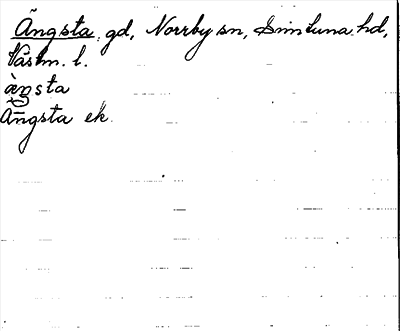 Ängsta gd, Norrby sn, Simtuna hd,
Västm. l.
àŋsta
Ängsta ek.